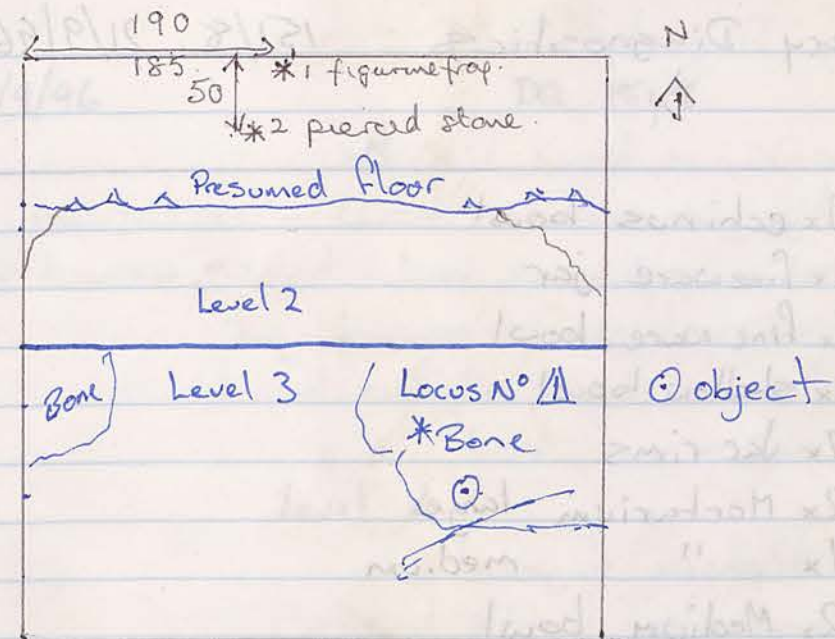 190
N
185
*1 figurine frag.
50
*2 pierced stone.
Presumed floor
Level 2
Bone
Level 3
Locus Nº 11
⊙ object
*Bone